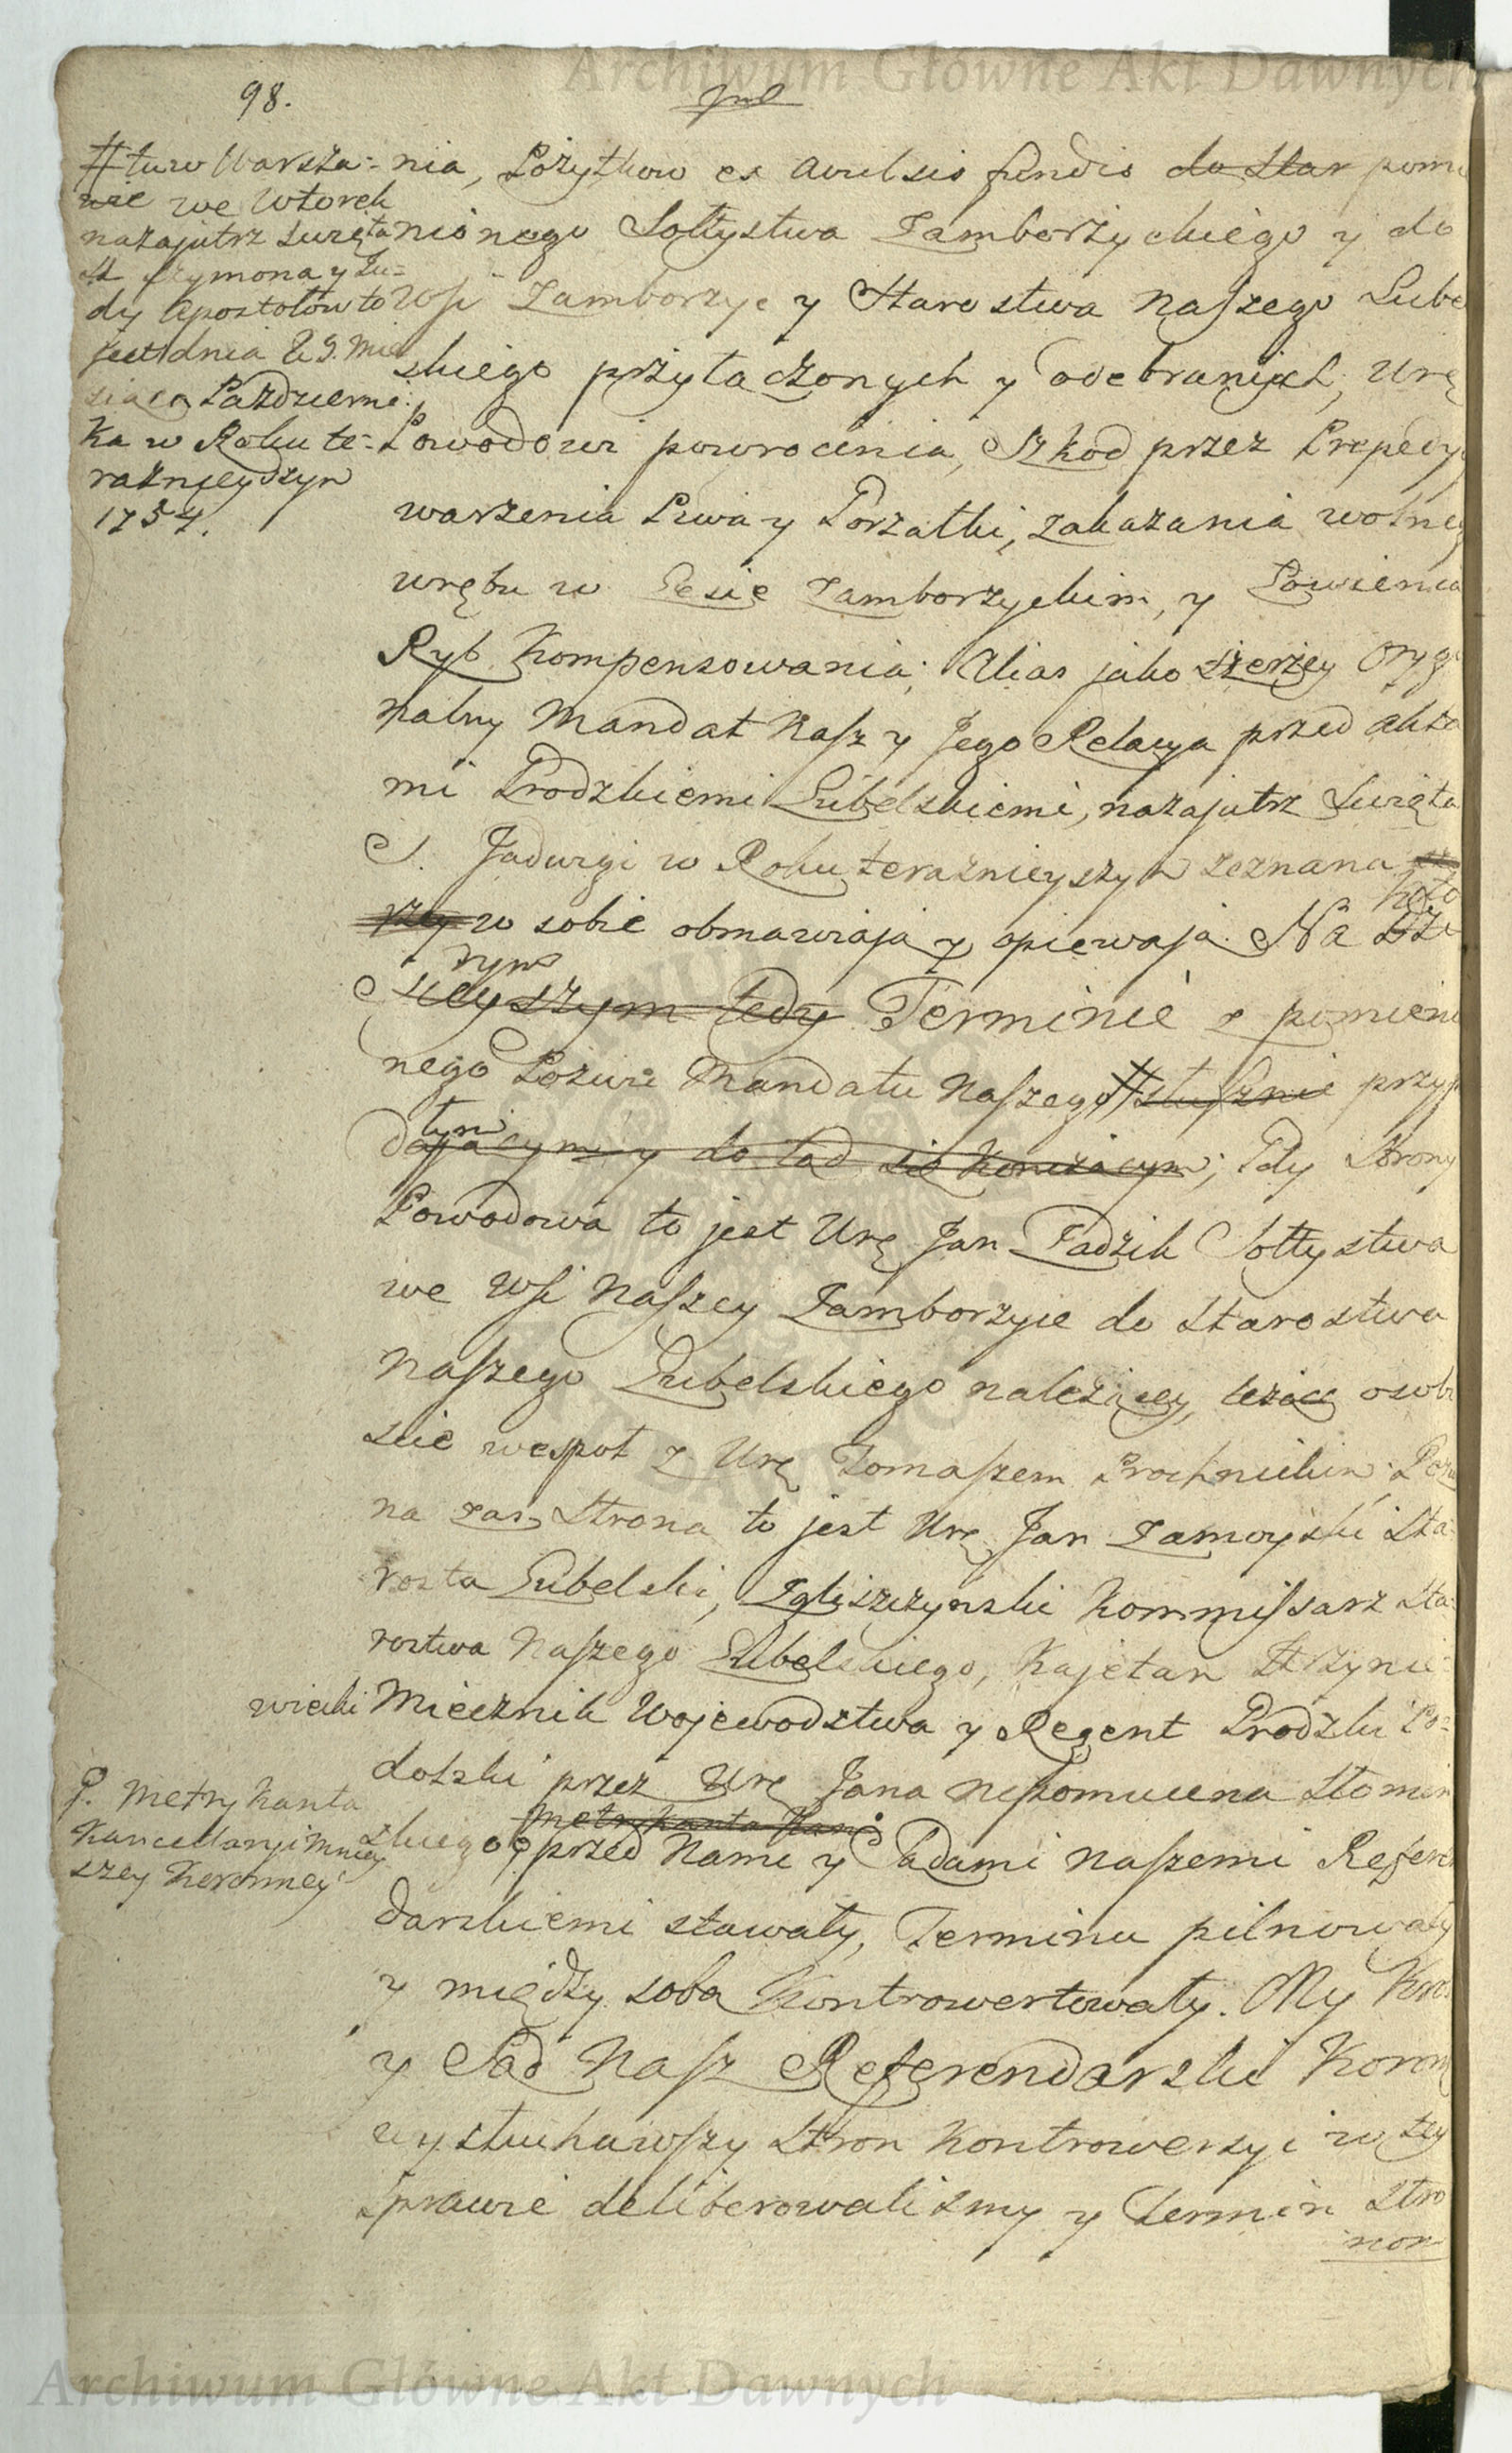 Archiwum Główne Akt Dawnych
98.
# tu w Warsza=
wie we Wtorek
nazajutrz Swięta
SS Szymona y Ju=
dy Apostołow to
jest dnia 29. Mie
siąca Pazdzierni:
ka w Roku te=
raznieyszym
1754.
nia, Pożytkow ex avulsis fundis do Star pomie
nionego Sołtystwa Zamborzyckiego y do
Wsi Zamborzyc y Starostwa Naszego Lubel
skiego przyłączonych y odebranych, Urę
Powodowi powrocenia, Szkod przez Prepedy
warzenia Piwa y Gorzałki, zakazania wolneg
wrębu w Lesie Zamborzyckim, y Łowienia
Ryb Kompensowania; Alias jako szerzey Orygi
nalny Mandat Nasz y Jego Relacya przed akta
mi Grodzkiemi Lubelskiemi, nazajutrz Swięta
S. Jadwigi w Roku teraznieyszym zeznana
w sobie obmawiają y opiewają. Na Dzi
tym
sieyszym tedy Terminie z pomienio
nego Pozwu Mandatu Naszego # słusznie przypa
tym
dającym y do tąd się kończącym; Gdy Strony
Powodowa to jest Urę Jan Fadzik Sołtystwa
we Wsi Naszey Zamborzyce do Starostwa
Naszego Lubelskiego należącey, osobi
scie wespoł z Urę Tomaszem Prochnickim; Pozwa
na zas Strona to jest Urę Jan Zamoyski Sta
rosta Lubelski, Zgliszczynski Kommissarz Sta
rostwa Naszego Lubelskiego, Kajetan Strzynie=
wiecki Miecznik Wojewodztwa y Regent Grodzki Po=
dolski przez Urę Jana Nepomucena Słomin
Metrykanta Kan:
skiego przed Nami y Sądami naszemi Referen
P. Metrykanta
Kancellaryi Mniey
szey Koronney
darskiemi stawały, Terminu pilnowały
y między sobą Kontrowertowały. My Krol
y Sąd Nasz Referendarski Koronny
wysłuchawszy Stron Kontrowersyi w tey
Sprawie deliberowalismy y Termin Stro
nom
Archiwum Główne Akt Dawnych